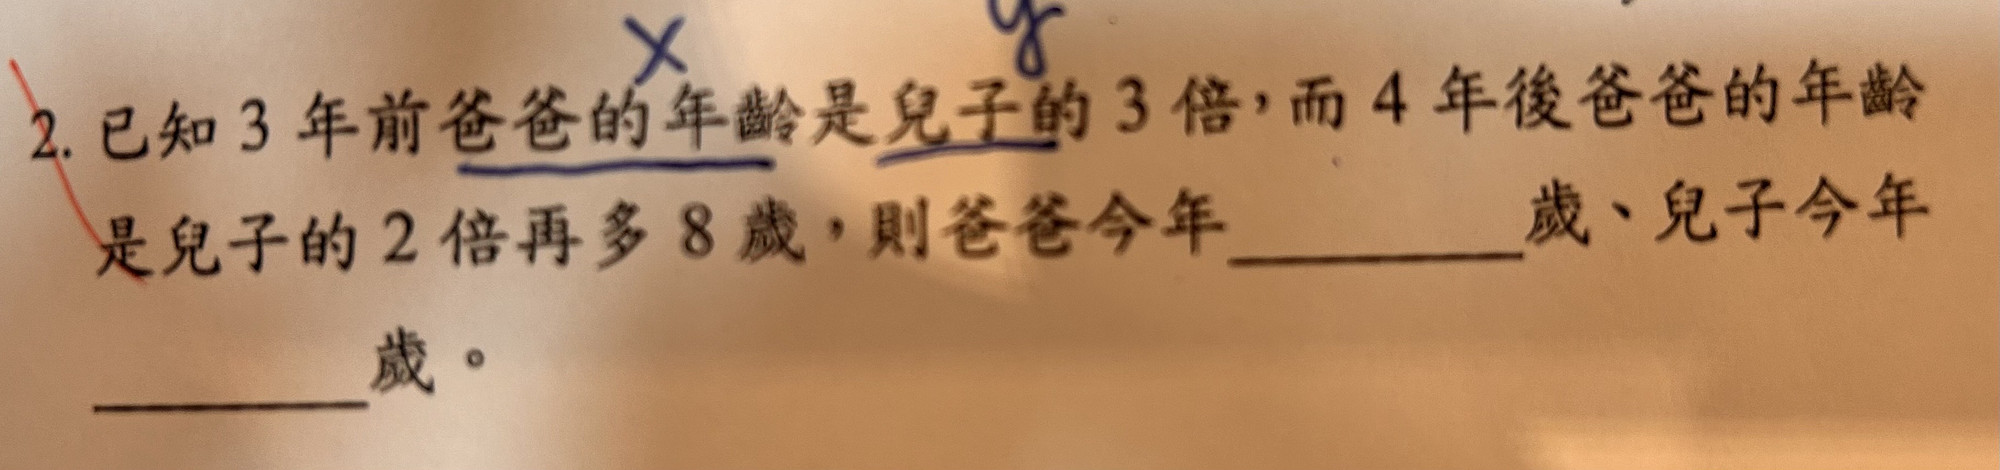 x y
2. 已知 3 年前爸爸的年齡是兒子的 3 倍，而 4 年後爸爸的年齡
是兒子的 2 倍再多 8 歲，則爸爸今年________歲、兒子今年
________歲。